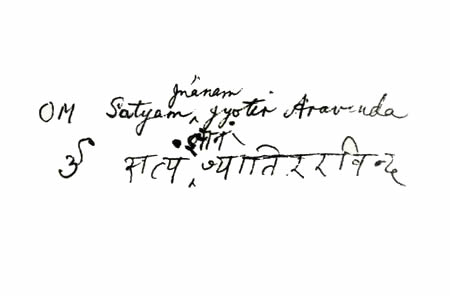 OM Satyam Jnānam Jyotir Aravinda
ॐ सत्यं ज्ञानं ज्योतिररविन्द